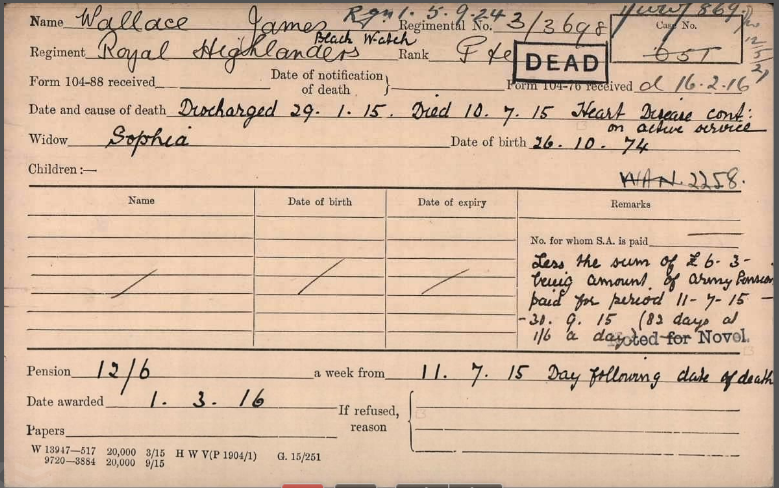 Name Wallace James Rgn 1. 5. 9. 24 Regimental No. 3/3698 Case No.
Regiment Royal Highlanders Black Watch Rank Pte DEAD
Form 104-88 received Date of notification of death Form 104-76 received d 16.2.16
Date and cause of death Discharged 29. 1. 15. Died 10. 7. 15 Heart Disease cont: on active service
Widow Sophia Date of birth 26. 10. 74
Children:— WAN. 2258.
Name Date of birth Date of expiry Remarks
No. for whom S.A. is paid —
Less the sum of £6-3-
being amount of Army Pension
paid for period 11-7-15 —
-30. 9. 15 (82 days at
1/6 a day) Noted for Novel.
Pension 12/6 a week from 11. 7. 15 Day following date of death
Date awarded 1. 3. 16 If refused, reason
Papers
W 13947—517 20,000 3/15 H W V(P 1904/1) G. 15/251
9720—3884 20,000 9/15